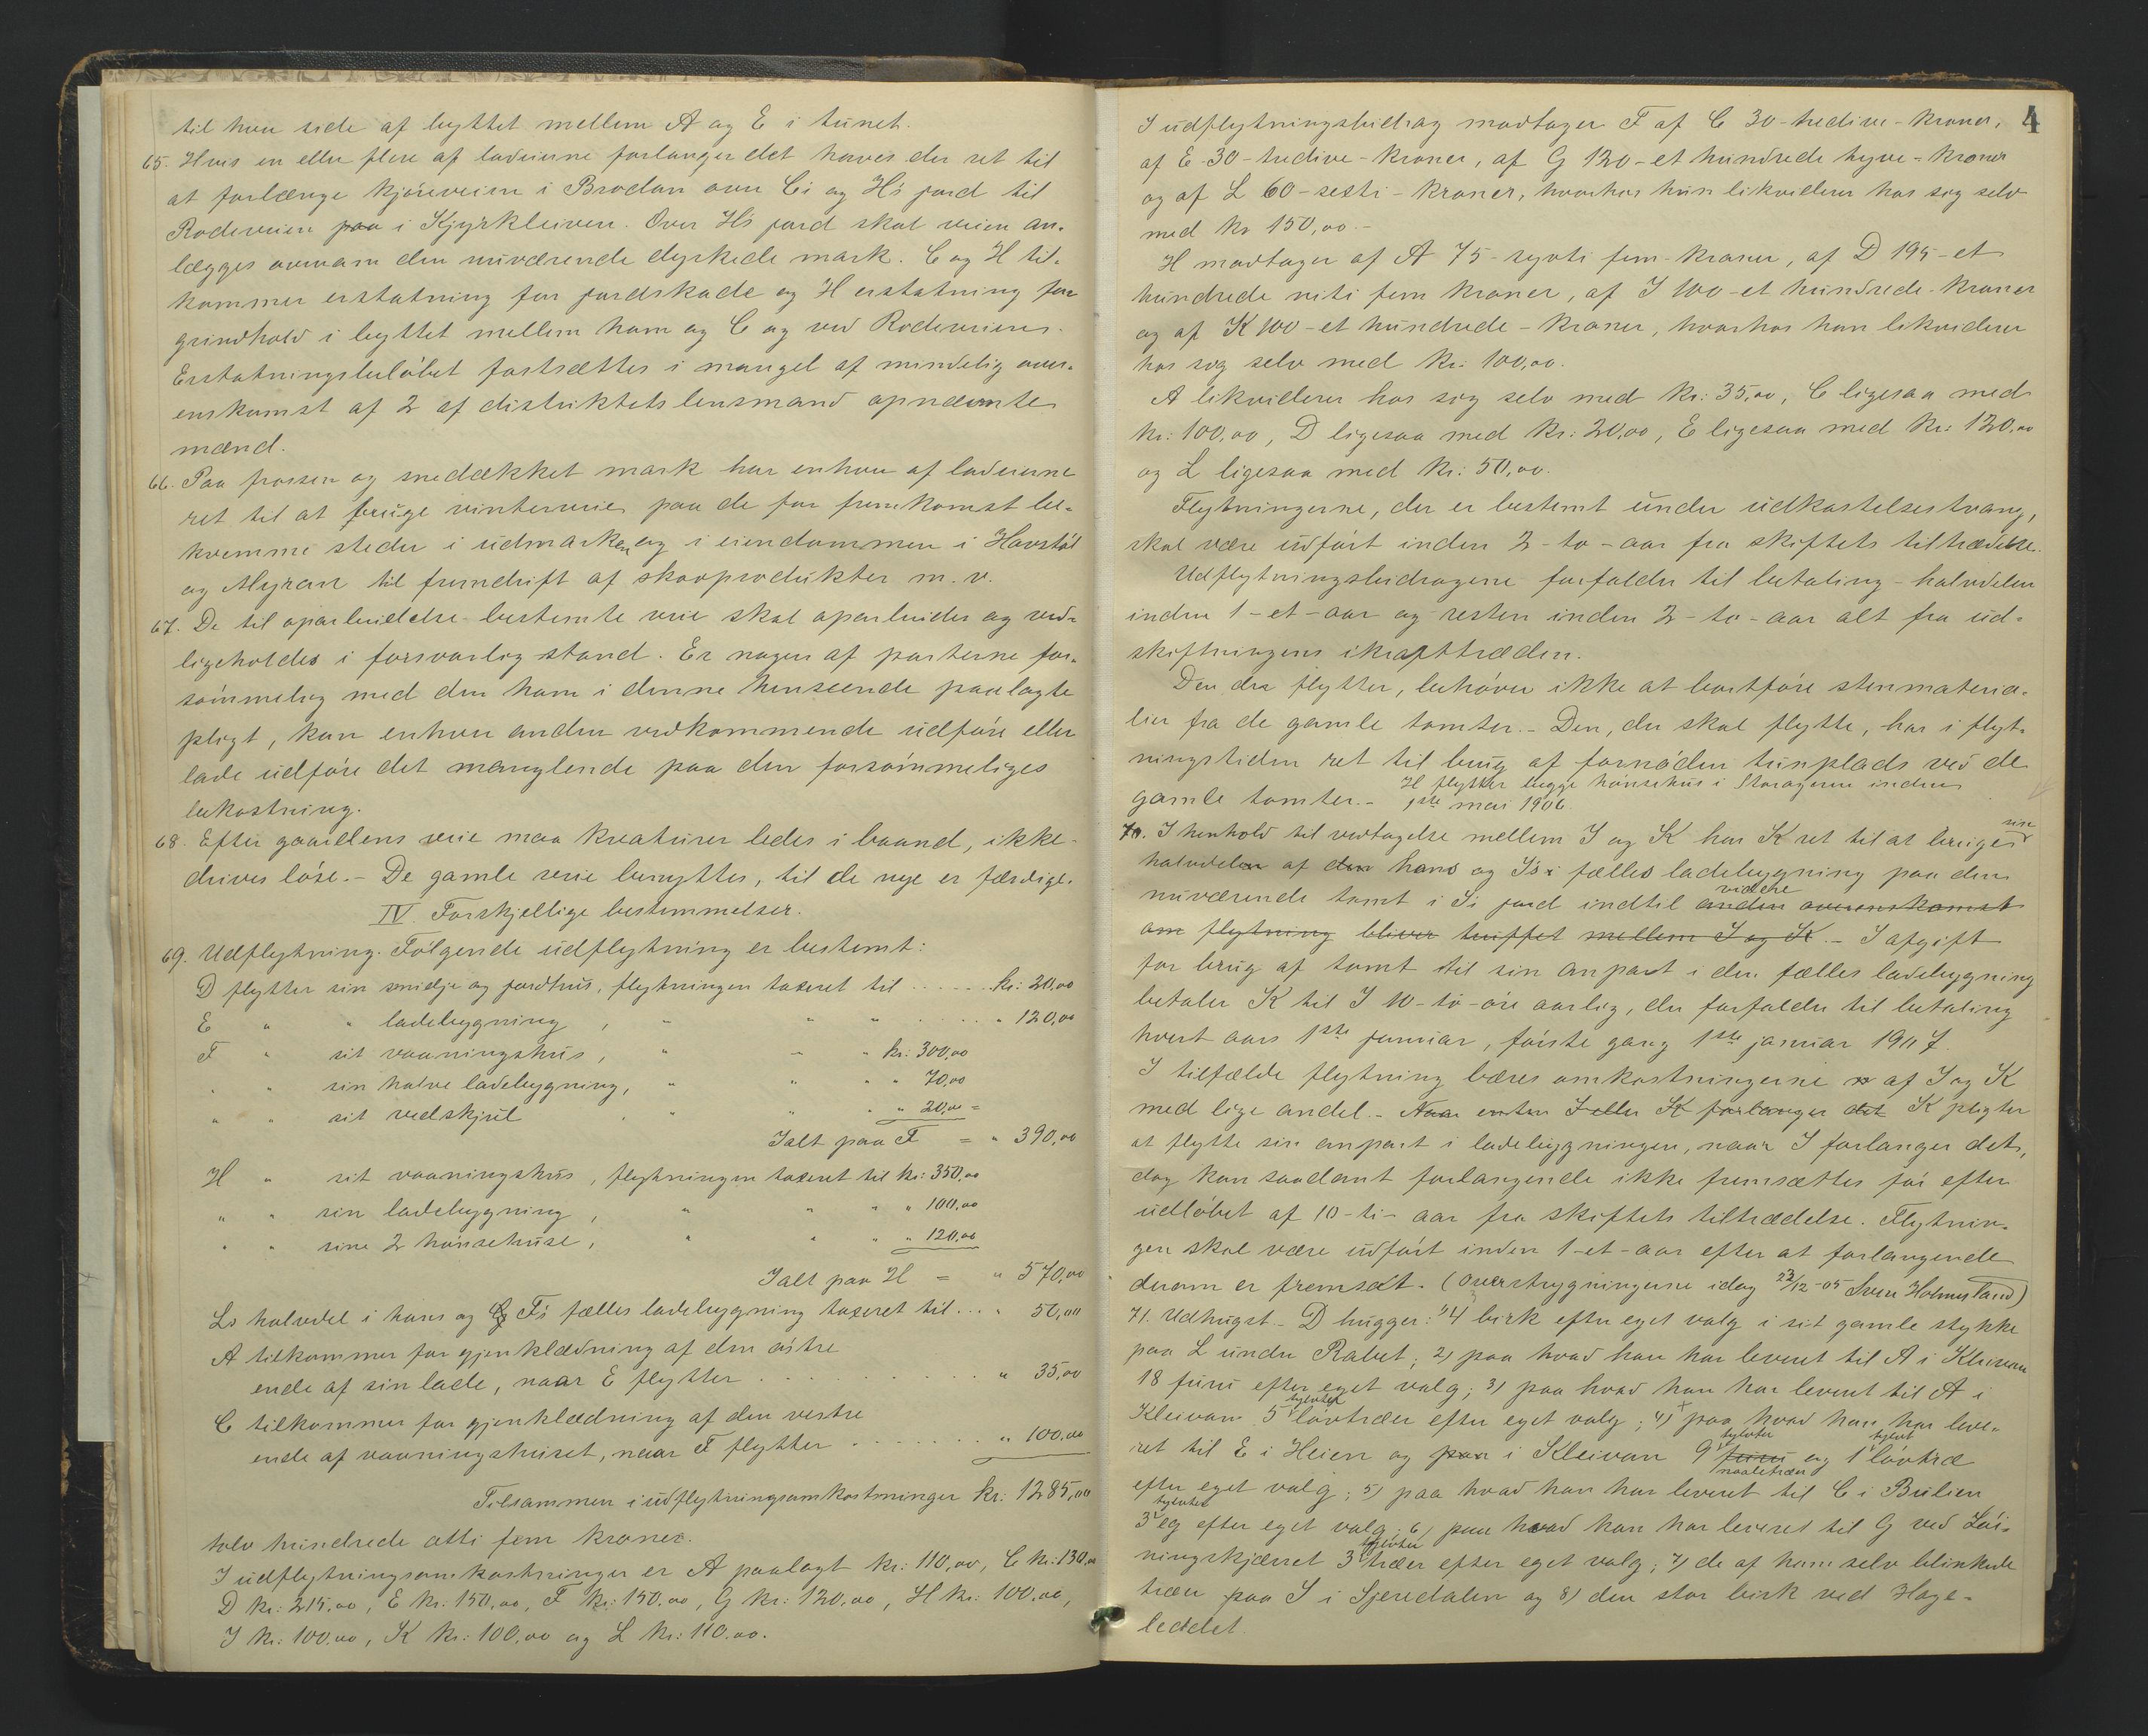 til hver side af byttet mellem A og E i tunet.
65. Hvis en eller flere af lodeierne forlanger det haves der ret til
at forlænge kjøreveien i Brodan over C's og H's jord til
Rodeveien paa i Kjyrkleiven. Over H's jord skal veien an-
lægges ovenom den nuværende dyrkede mark. C og H til-
kommer erstatning for jordskade og H erstatning for
grindhold i byttet mellem ham og C og ved Rodeveien.
Erstatningsbeløbet fastsættes i mangel af mindelig over-
enskomst af 2 af distriktets lensmand opnævnte
mænd.
66. Paa frossen og snedækket mark har enhver af lodeierne
ret til at bruge vinterveie paa de for fremkomst be-
kvemme steder i udmarken og i eiendommen i Havstøl
og Myran til fremdrift af skovprodukter m. v.
67. De til oparbeidelse bestemte veie skal oparbeides og ved-
ligeholdes i forsvarlig stand. Er nogen af parterne for-
sømmelig med den ham i denne henseende paalagte
pligt, kan enhver anden vedkommende udføre eller
lade udføre det manglende paa den forsømmeliges
bekostning.
68. Efter gaardens veie maa kreaturer ledes i baand, ikke
drives løse. - De gamle veie benyttes, til de nye er færdige.
IV. Forskjellige bestemmelser.
69. Udflytning. Følgende udflytning er bestemt:
D flytter sin smidje og jordhus, flytningen taxeret til ...... kr: 20,00
E " " ladebygning, " " " ..... " 120,00
F " sit vaaningshus, " " " kr: 300,00
" " sin halve ladebygning, " " " " 70,00
" " sit vedskjul " " " " " 20,00 =
Ialt paa F = " 390,00
H " sit vaaningshus, flytningen taxeret til kr: 350,00
" " sin ladebygning, " " " " 100,00
" " sine 2 hønsehuse, " " " " 120,00
Ialt paa H = " 570,00
Ls halvdel i hans og F's fælles ladebygning taxeret til ... " 50,00
A tilkommer for gjenklædning af den østre
ende af sin lade, naar E flytter .......... " 35,00
C tilkommer for gjenklædning af den vestre
ende af vaaningshuset, naar F flytter ....... " 100,00
Tilsammen i udflytningsomkostninger kr: 1285,00
tolv hundrede otti fem kroner.
I udflytningsomkostninger er A paalagt kr: 110,00, C kr: 130,00
D kr: 215,00, E kr: 150,00, F kr: 150,00, G kr: 120,00, H kr: 100,00,
I kr: 100,00, K kr: 100,00 og L kr: 110,00.
4
I udflytningsbidrag modtager F af C 30-tredive-kroner,
af E 30-tredive-kroner, af G 120-et hundrede tyve-kroner
og af L 60-sexti-kroner, hvorhos hun likviderer hos sig selv
med kr 150,00.-
H modtager af A 75-sytti fem-kroner, af D 195-et
hundrede niti fem kroner, af I 100-et hundrede-kroner
og af K 100-et hundrede-kroner, hvorhos han likviderer
hos sig selv med kr: 100,00.
A likviderer hos sig selv med kr: 35,00, C ligesaa med
kr: 100,00, D ligesaa med kr: 20,00, E ligesaa med kr: 120,00
og L ligesaa med kr: 50,00.
Flytningerne, der er bestemt under udkastelsestvang,
skal være udført inden 2-to-aar fra skiftets tiltrædelse.
Udflytningsbidragene forfalder til betaling - halvdelen
inden 1-et-aar og resten inden 2-to-aar alt fra ud-
skiftningens ikrafttræden.
Den der flytter, behøver ikke at bortføre stenmateria-
lier fra de gamle tomter. - Den, der skal flytte, har i flyt-
ningstiden ret til brug af fornøden tunplads ved de
gamle tomter. - H flytter begge hønsehus i Storageren inden
1ste mai 1906.
70. I henhold til vedtagelse mellem I og K har K ret til at bruge sin
halvdelen af den hans og I's fælles ladebygning paa den
nuværende tomt i I's jord indtil videre anden overenskomst
om flytning bliver truffet mellem I og K. - I afgift
for brug af tomt til sin anpart i den fælles ladebygning
betaler K til I 10-ti-øre aarlig, der forfalder til betaling
hvert aars 1ste januar, første gang 1ste januar 1907.
I tilfælde flytning bæres omkostningerne af I og K
med lige andel. - Naar enten I eller K forlanger det K pligter
at flytte sin anpart i ladebyggningen, naar I forlanger det,
dog kan saadant forlangende ikke fremsættes før efter
udløbet af 10-ti-aar fra skiftets tiltrædelse. Flytnin-
gen skal være udført inden 1-et-aar efter at forlangende
derom er fremsat. (Overstrygningerne idag 22/12-05 Sven Holmesland)
71. Udhugst. - D hugger: 1) 4 birk efter eget valg i sit gamle stykke
paa L under Rabet; 2) paa hvad han har leveret til A i Kleivan
18 furu efter eget valg; 3) paa hvad han har leveret til A i
Kleivan 5 tylvter løvtræer efter eget valg; 4) paa hvad han har leve-
ret til E i Heien og paa i Kleivan 9 tylvter furu naaletræer og 1 tylvt løvtræ
efter eget valg; 5) paa hvad han har leveret til C i Bulien
3 tylvter eg efter eget valg; 6) paa hvad han har leveret til G ved Løi-
ningskjærret 3 tylvter træer efter eget valg; 7) de af ham selv blinkede
træer paa I i Sjeredalen og 8) den stor birk ved Hage-
leddet.